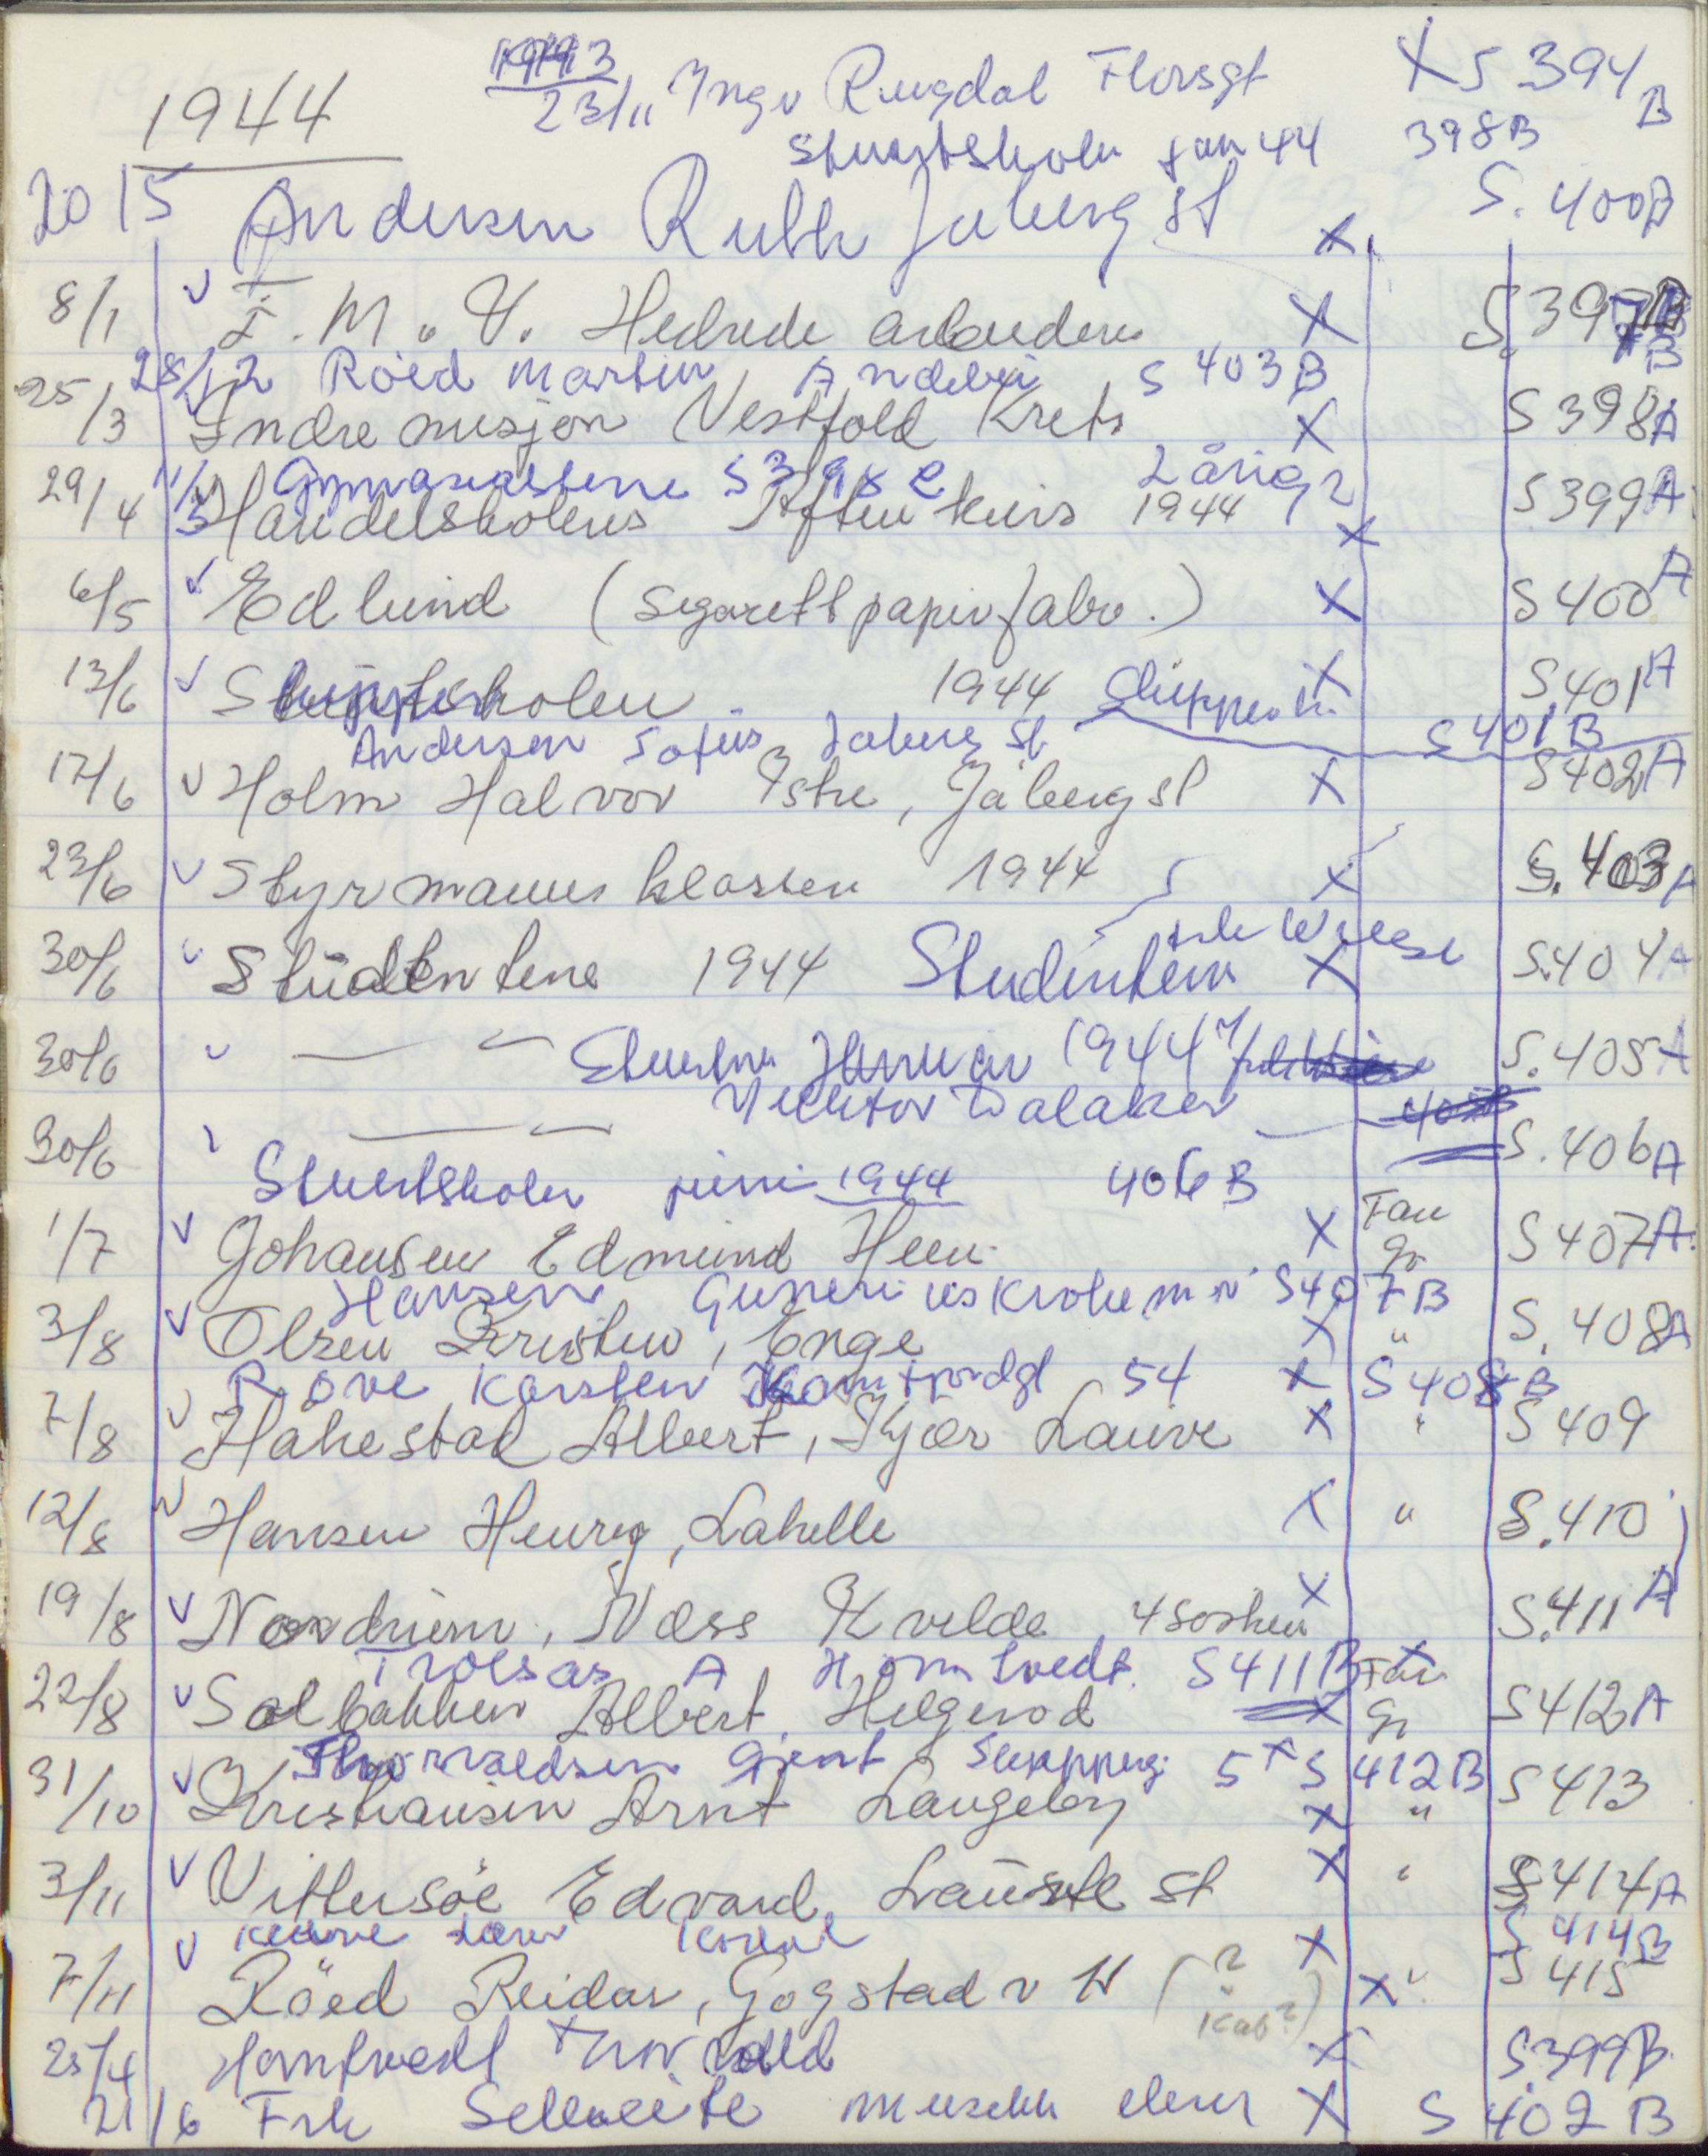 1944 1943 23/11 Yngv Rugdal Florsgt X S 394 B
Stuertskolen jan 44 398B
20/5 Andersen Ruth Jåberg st X S. 400B
8/1 V I. M. V. Hedrede arbeidere X S. 397 B
28/12 Röed Martin Andebu S 403 B
25/3 Indre misjon Vestfold Krets X S 398A
Gymnasiastene S 398 C 2 årig
29/4 Handelskolens Aftenkurs 1944 X S 399A
6/5 V Edlund (Sigarettpapirfabr.) X S 400 A
13/6 V 1944 Skipper X S.401 A
Andersen Sofus Jåberg St S 401 B
17/6 V Holm Halvor Istre, Jåberg st X S 402A
23/6 V Styrmannsklassen 1944 X S. 403 A
30/6 Studentene 1944 Studentene X S.404 A
30/6 " Januar 1944 S. 405 A
Dalaker
30/6 " S. 406A
Stuertskolen juni 1944 406 B
1/7 V Johansen Edmund Heen X Fan gr S 407A
Hansen Guneri us Krokemnv S407B
3/8 V Olsen Kristen, Enge X " S. 408A
Röve Karsten 54 X S 408 B
7/8 V Håkestad Albert, Kjær Lauve X " S 409
12/8 V Hansen Henry, Lahelle X " S.410
19/8 V Nordheim, Næss Kvelde, 4 søsken X S.411 A
Trolsås A Homtvedt. S411B Fan
22/8 V Solbakken Albert, Helgerod X gr S 412 A
Thorvaldsen Gjent S 412 B
31/10 V Kristiansen Arnt Langeby X " S 413
3/11 V Vittersöe Edvard, Lauve st X " S 414A
S 414B
7/11 V Röed Reidar, Gogstad v N (? Kab?) X " S 415
25/4 Homtvedt Thorvald X S.399B
21/6 Frk musikk elever X S 402 B